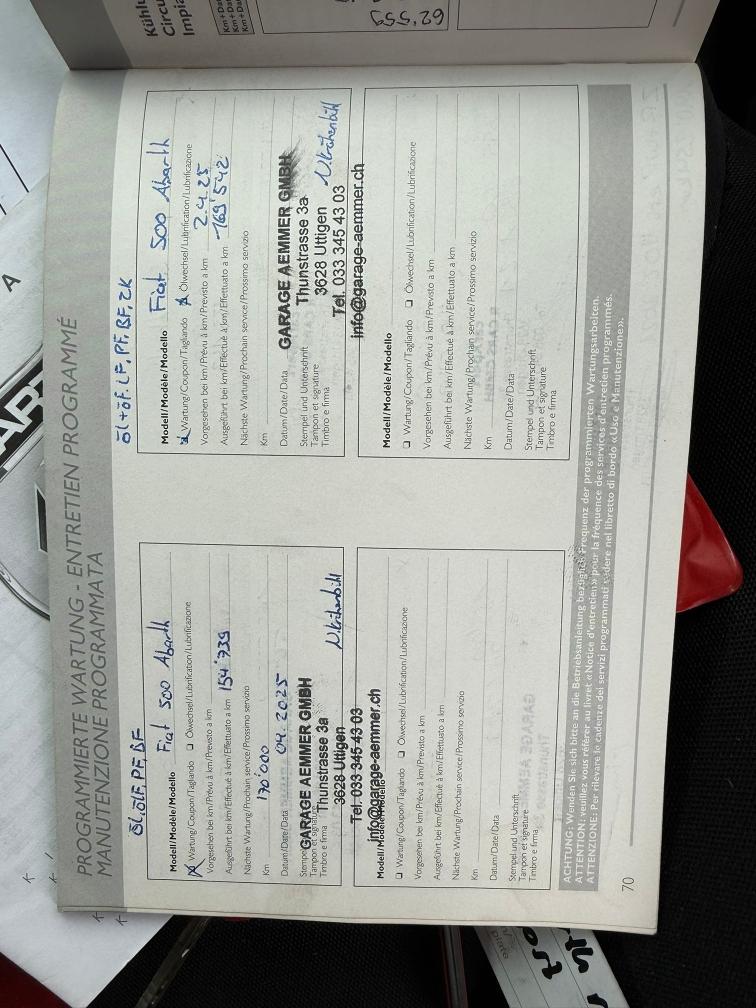 PROGRAMMIERTE WARTUNG - ENTRETIEN PROGRAMMÉ
MANUTENZIONE PROGRAMMATA
Öl, ÖlF, PF, BF
Modell/Modèle/Modello Fiat 500 Abarth
Wartung/Coupon/Tagliando ❏ Ölwechsel/Lubrification/Lubrificazione
Vorgesehen bei km/Prévu à km/Previsto a km
Ausgeführt bei km/Effectué à km/Effettuato a km 154'739
Nächste Wartung/Prochain service/Prossimo servizio
Km 170'000
Datum/Date/Data 04.2025
Stempel
Tampon et signature
Timbro e firma
GARAGE AEMMER GMBH
Thunstrasse 3a
3628 Uttigen
Tel. 033 345 43 03
info@garage-aemmer.ch
Modell/Modèle/Modello
❏ Wartung/Coupon/Tagliando ❏ Ölwechsel/Lubrification/Lubrificazione
Vorgesehen bei km/Prévu à km/Previsto a km
Ausgeführt bei km/Effectué à km/Effettuato a km
Nächste Wartung/Prochain service/Prossimo servizio
Km
Datum/Date/Data
Stempel und Unterschrift
Tampon et signature
Timbro e firma
Öl+ÖF, LF, PF, BF, ZK
Modell/Modèle/Modello Fiat 500 Abarth
Wartung/Coupon/Tagliando Ölwechsel/Lubrification/Lubrificazione
Vorgesehen bei km/Prévu à km/Previsto a km 2.4.25
Ausgeführt bei km/Effectué à km/Effettuato a km 169'542
Nächste Wartung/Prochain service/Prossimo servizio
Km
Datum/Date/Data
Stempel und Unterschrift
Tampon et signature
Timbro e firma
GARAGE AEMMER GMBH
Thunstrasse 3a
3628 Uttigen
Tel. 033 345 43 03
info@garage-aemmer.ch
Modell/Modèle/Modello
❏ Wartung/Coupon/Tagliando ❏ Ölwechsel/Lubrification/Lubrificazione
Vorgesehen bei km/Prévu à km/Previsto a km
Ausgeführt bei km/Effectué à km/Effettuato a km
Nächste Wartung/Prochain service/Prossimo servizio
Km
Datum/Date/Data
Stempel und Unterschrift
Tampon et signature
Timbro e firma
ACHTUNG: Wenden Sie sich bitte an die Betriebsanleitung bezüglich Frequenz der programmierten Wartungsarbeiten.
ATTENTION: veuillez vous référer au livret «Notice d'entretien» pour la fréquence des services d'entretien programmés.
ATTENZIONE: Per rilevare le cadenze dei servizi programmati vedere nel libretto di bordo «Uso e Manutenzione».
70
62'559